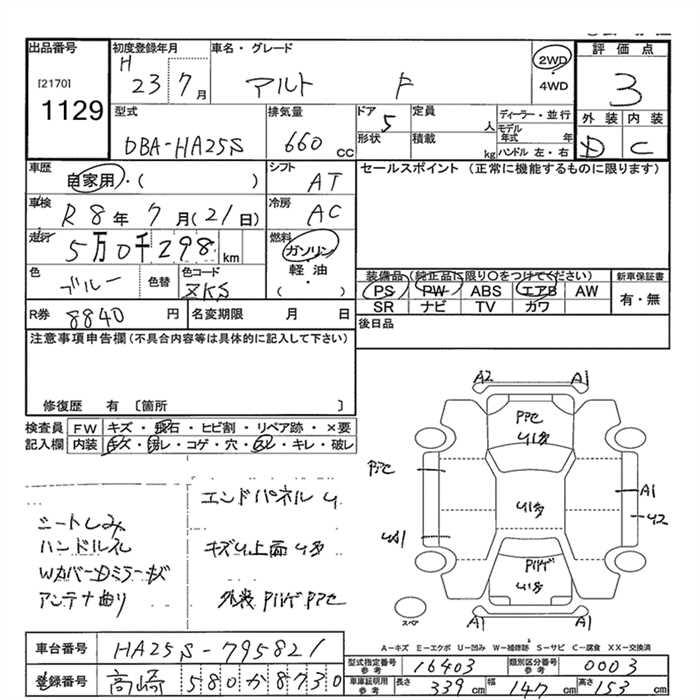 出品番号 初度登録年月 車名・グレード 2WD ・ 4WD 評価点
[2170] H 23 7月 アルト F 3
1129 型式 排気量 ドア 定員 ディーラー・並行 外装 内装
DBA-HA25S 660 CC 5 人 モデル年式 年 D C
形状 積載 kg ハンドル 左・右
車歴 自家用・( ) シフト AT セールスポイント (正常に機能するものに限ります)
車検 R 8年 7月(21日) 冷房 AC
走行 5万0千298 km 燃料 ガソリン 軽油 ( )
色 ブルー 色替 色コード ZKS
装備品 (純正品に限り○をつけてください) 新車保証書
PS PW ABS エアB AW 有・無
SR ナビ TV カワ
R券 8840円 名変期限 月 日 後日品
注意事項申告欄(不具合内容等は具体的に記入して下さい)
修復歴 有 〔箇所 〕
検査員記入欄 FW キズ・飛石・ヒビ割・リペア跡・×要
内装 キズ・汚レ・コゲ・穴・スレ・キレ・破レ
A2 A1
PPC
U1多
PPC
A1
U2
U1多
UD1
P1ハゲ
U1多
A1 A1
スペア
エンドパネル U
シートしみ
ハンドルスレ キズU上面U多
Wカバー Dミラーキズ
アンテナ曲り 外装P1ハゲPPC
A－キズ E－エクボ U－凹み W－補修跡 S－サビ C－腐食 XX－交換済
車台番号 HA25S-795821
型式指定番号 参考 16403 類別区分番号 参考 0003
登録番号 高崎 580か8730
車庫証明用 参考 長さ 339cm 幅 147cm 高さ 153cm